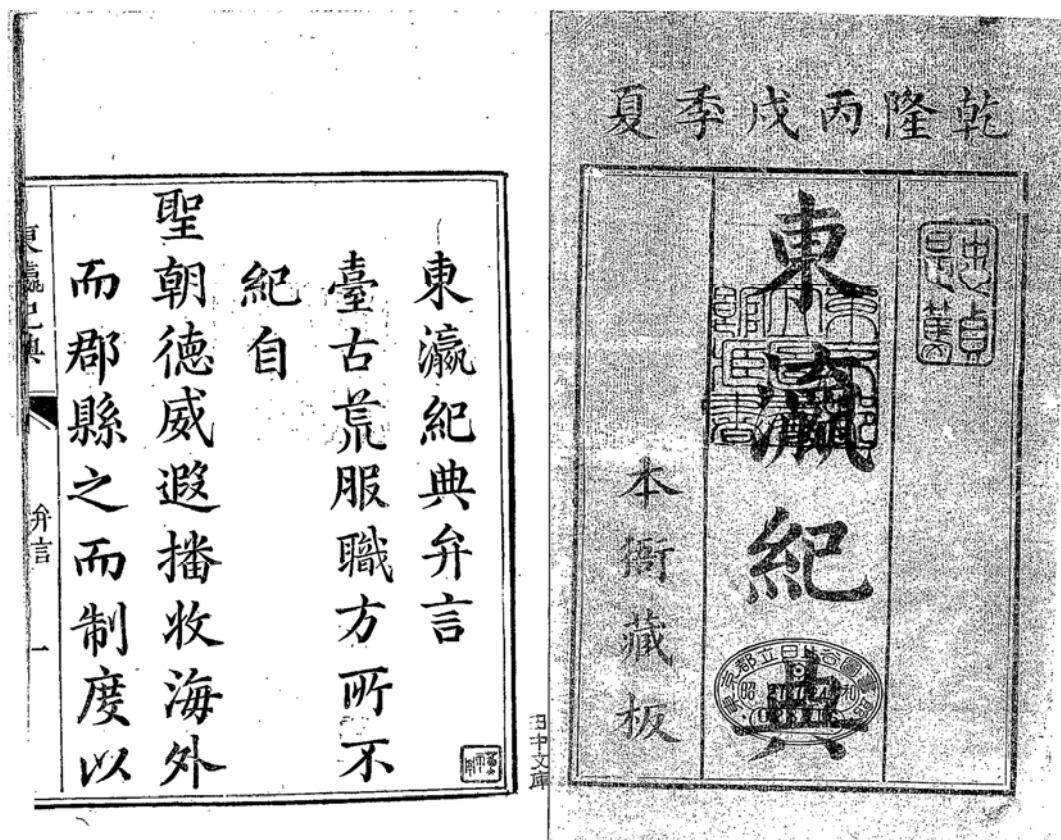 乾隆丙戌季夏
東瀛紀典
本衙藏板
忠貞是篤
田中文庫
東瀛紀典弁言
臺古荒服職方所不
紀自
聖朝德威遐播收海外
而郡縣之而制度以
東瀛紀典
弁言
一